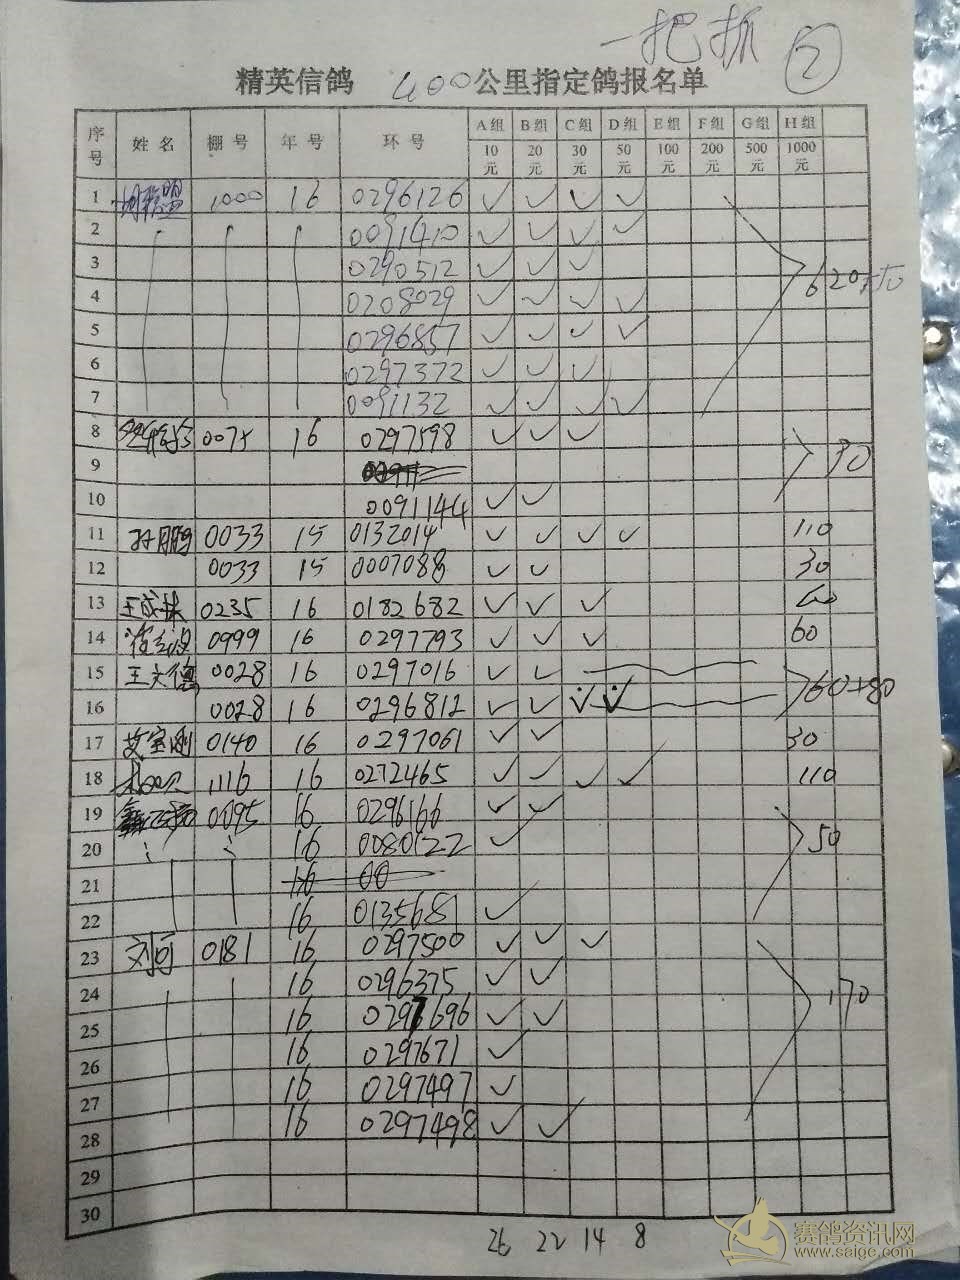 一把抓 ②
精英信鸽 400公里指定鸽报名单
序号 姓名 棚号 年号 环号 A组 B组 C组 D组 E组 F组 G组 H组
10元 20元 30元 50元 100元 200元 500元 1000元
1 1000 16 0296126 ✓ ✓ ✓ ✓
2 0091410 ✓ ✓ ✓ ✓
3 0290512 ✓ ✓ ✓
4 0208029 ✓ ✓ ✓ ✓ 620
5 0296857 ✓ ✓ ✓ ✓
6 0297372 ✓ ✓ ✓
7 0091132 ✓ ✓ ✓ ✓
8 16 0297598 ✓ ✓ ✓
9 90
10 0091144 ✓ ✓
11 孙鹏 0033 15 0132014 ✓ ✓ ✓ ✓ 110
12 0033 15 0007088 ✓ ✓ 30
13 0235 16 0182682 ✓ ✓ ✓ 60
14 0999 16 0297793 ✓ ✓ ✓ 60
15 王文德 0028 16 0297016 ✓ ✓
16 0028 16 0296812 ✓ ✓ ✓ ✓ 60+80
17 艾宝刚 0140 16 0297061 ✓ ✓ 30
18 1116 16 0272465 ✓ ✓ ✓ ✓ 110
19 0095 16 0296166 ✓ ✓
20 16 0080122 ✓ 50
21 16 00
22 16 0135681 ✓
23 刘何 0181 16 0297500 ✓ ✓ ✓
24 16 0296375 ✓ ✓
25 16 0297696 ✓ ✓ 170
26 16 0297671 ✓
27 16 0297497 ✓
28 16 0297498 ✓ ✓
29
30
26 22 14 8
赛鸽资讯网
www.saigc.com